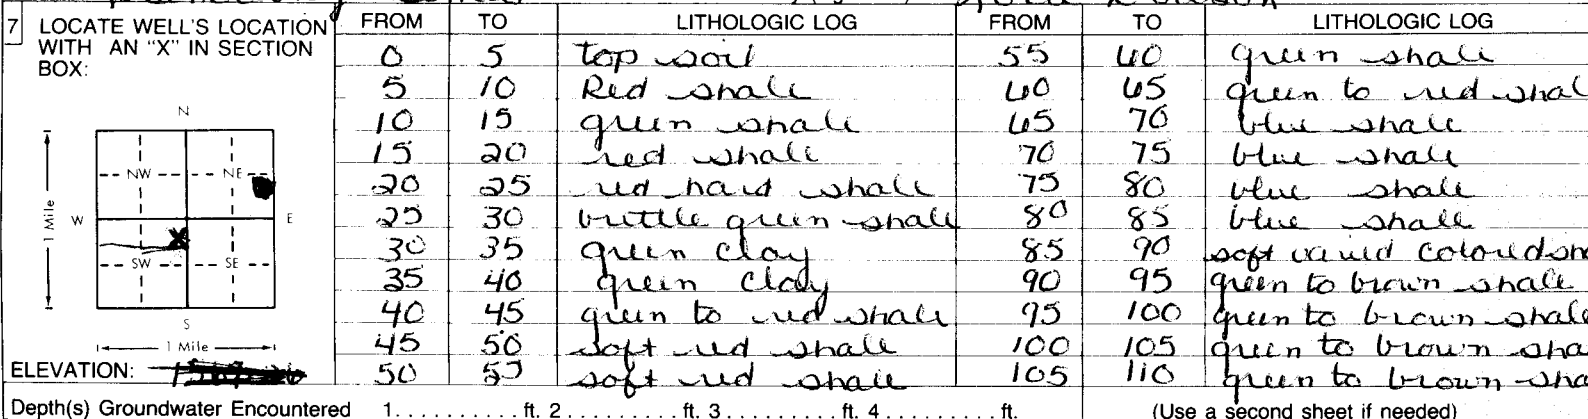 7 LOCATE WELL'S LOCATION WITH AN "X" IN SECTION BOX:
N
NW NE
W E
1 Mile
SW SE
S
1 Mile
ELEVATION:
FROM TO LITHOLOGIC LOG FROM TO LITHOLOGIC LOG
0 5 top soil 55 60 green shale
5 10 Red shale 60 65 green to red shal
10 15 green shale 65 70 blue shale
15 20 red shale 70 75 blue shale
20 25 red hard shale 75 80 blue shale
25 30 brittle green shale 80 85 blue shale
30 35 green clay 85 90 soft varied colored sha
35 40 green clay 90 95 green to brown shale
40 45 green to red shale 95 100 green to brown shale
45 50 soft red shale 100 105 green to brown sha
50 55 soft red shale 105 110 green to brown sha
Depth(s) Groundwater Encountered 1..........ft. 2..........ft. 3..........ft. 4..........ft. (Use a second sheet if needed)